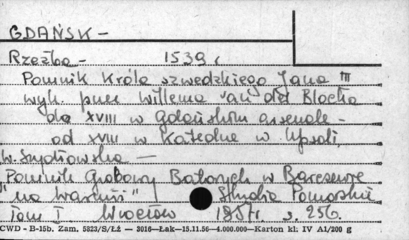 GDAŃSK –
Rzeźba – 1539 r.
Pomnik Króla szwedzkiego Jana III
wyk. przez Willema van der Blocka
do XVIII w gdańskim arsenale –
od XVIII w Katedrze w Upsali.
W. Szydłowska –
Pomnik Grobowy Batorych w Barczewie
"na Warmii" Studia Pomorskie
Tom I Wrocław 1957r. s. 256.
CWD - B-15b. Zam. 5823/S/LŻ — 3016—Łak—15.11.56—4.000.000—Karton kl. IV A1/200 g